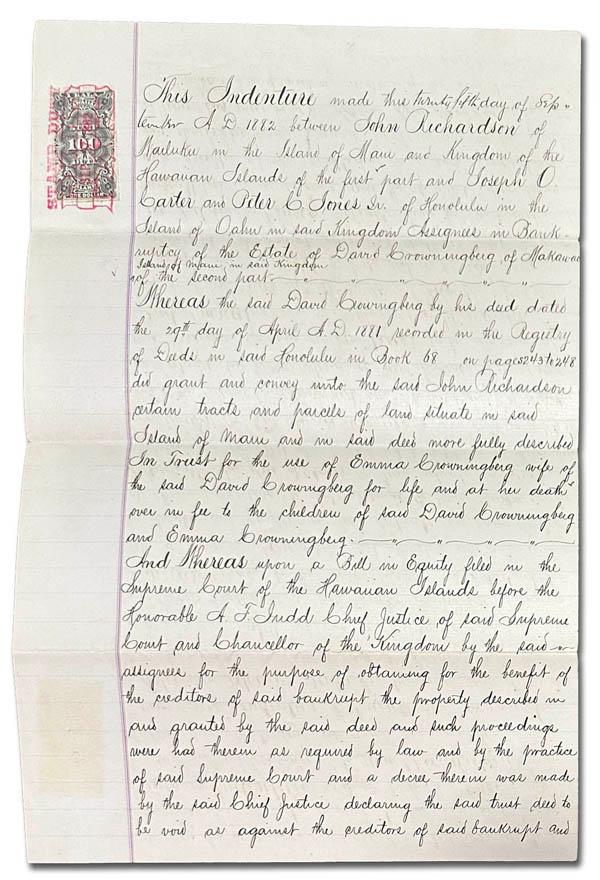 STAMP DUTY
100
This Indenture made this twenty fifth day of Sep"
tember A.D. 1882 between John Richardson of
Wailuku in the Island of Maui and Kingdom of the
Hawaiian Islands of the first part and Joseph O.
Carter and Peter C. Jones Jr. of Honolulu in the
Island of Oahu in said Kingdom Assignees in Bank-
ruptcy of the Estate of David Crowningberg, of Makawao
Island of Maui, in said Kingdom
of the second part
Whereas the said David Crowningberg by his deed dated
the 29th day of April A.D. 1881 recorded in the Registry
of Deeds in said Honolulu in Book 68 on pages 243 to 248
did grant and convey unto the said John Richardson
certain tracts and parcels of land situate in said
Island of Maui and in said deed more fully described
In Trust for the use of Emma Crowningberg wife of
the said David Crowningberg for life and at her death
over in fee to the children of said David Crowningberg
and Emma Crowningberg.
And Whereas upon a Bill in Equity filed in the
Supreme Court of the Hawaiian Islands before the
Honorable A. F. Judd Chief Justice of said Supreme
Court and Chancellor of the Kingdom by the said
assignees for the purpose of obtaining for the benefit of
the creditors of said bankrupt the property described in
and granted by the said deed and such proceedings
were had therein as required by law and by the practice
of said Supreme Court and a decree therein was made
by the said Chief Justice declaring the said trust deed to
be void as against the creditors of said bankrupt and